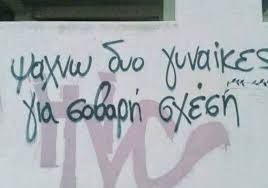 ψάχνω δυο γυναίκες
για σοβαρή σχέση